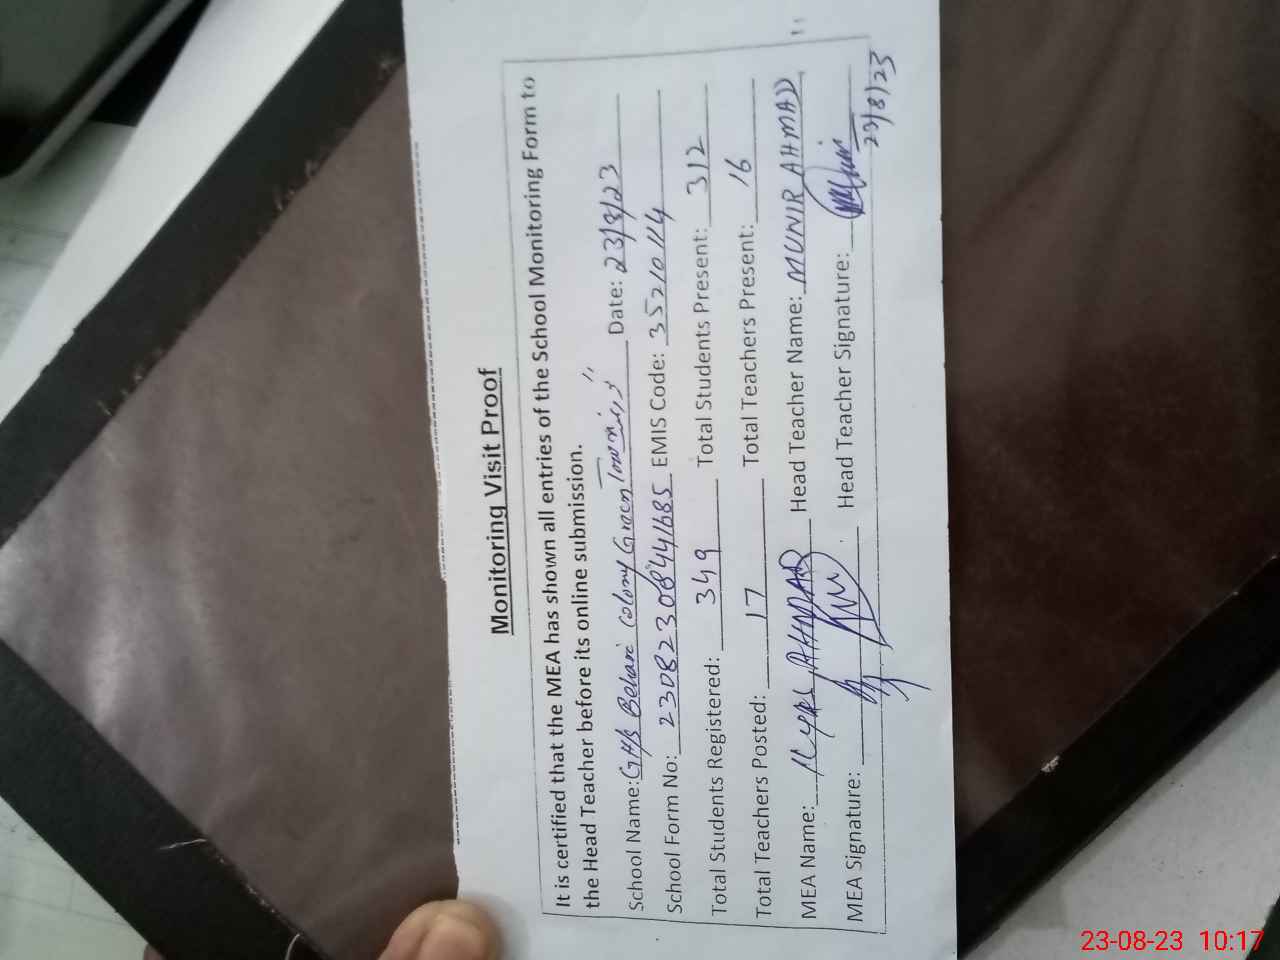 Monitoring Visit Proof
It is certified that the MEA has shown all entries of the School Monitoring Form to
the Head Teacher before its online submission.
School Name: GHS Behari Colony Green Town Date: 23/8/23
School Form No: 230823084441685 EMIS Code: 35210114
Total Students Registered: 349 Total Students Present: 312
Total Teachers Posted: 17 Total Teachers Present: 16
MEA Name: AHMAD Head Teacher Name: MUNIR AHMAD
MEA Signature: Head Teacher Signature:
23/8/23
23-08-23 10:17